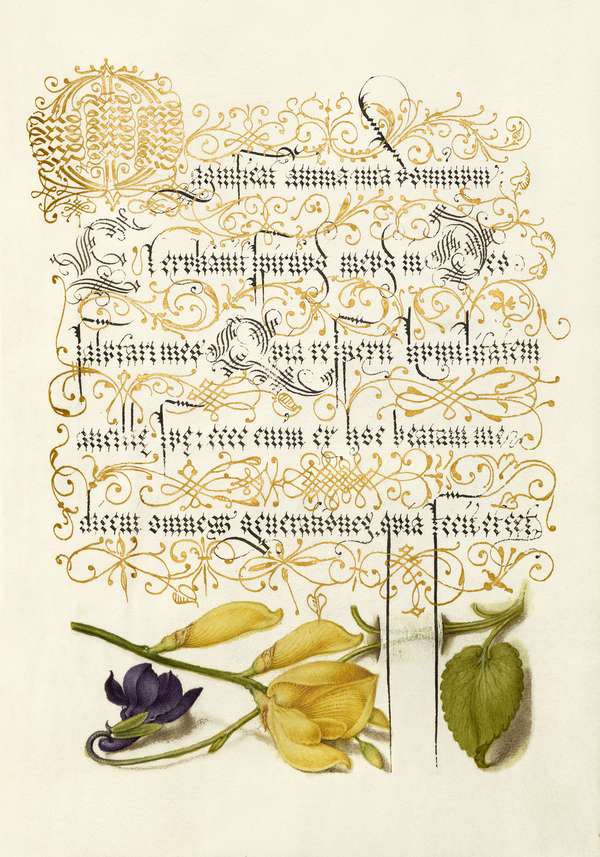 Magnificat anima mea dominum
Et exultavit spiritus meus in Deo
salutari meo Quia respexit humilitatem
ancillę suę: ecce enim ex hoc beatam me
dicent omnes generationes, quia fecit